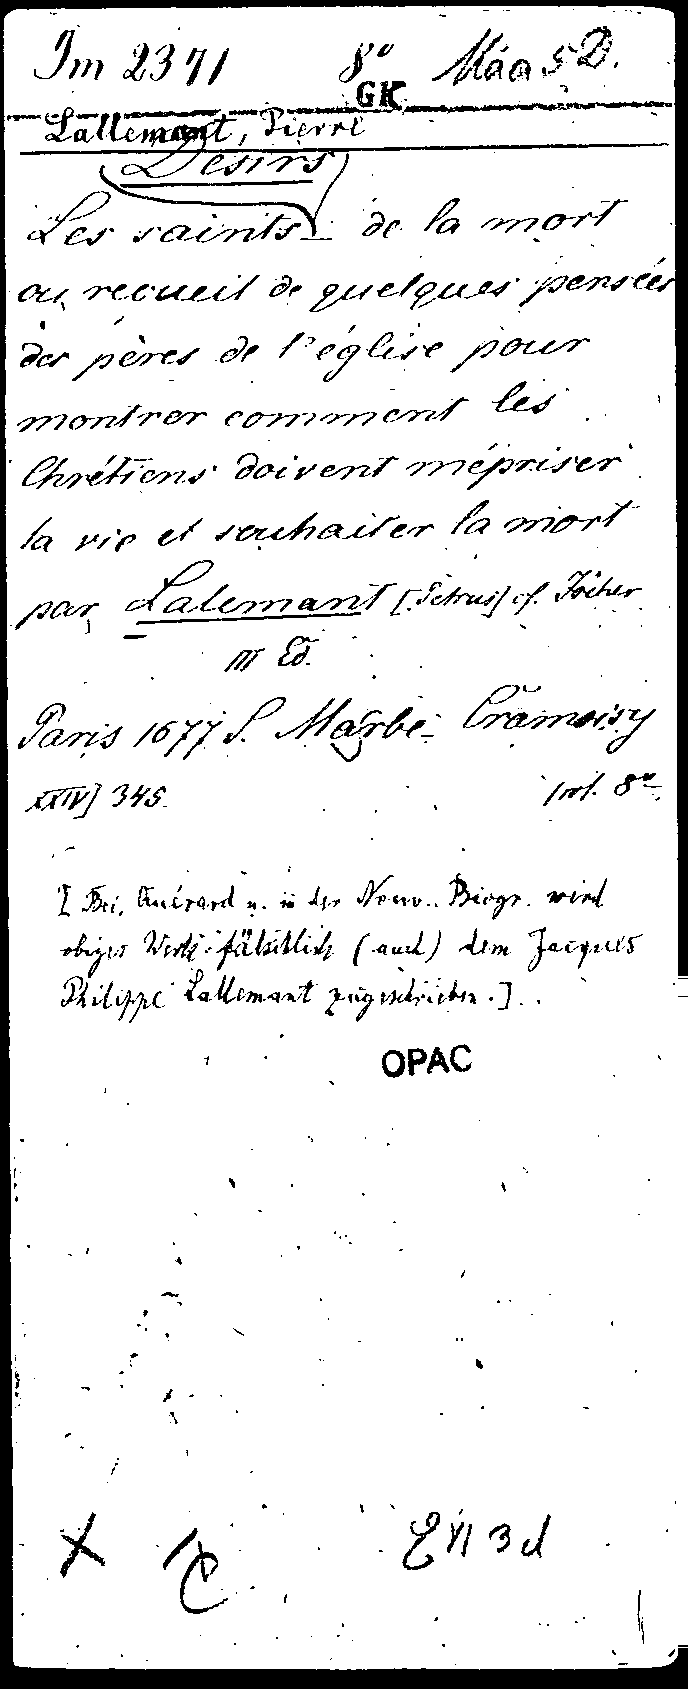 Im 2371 8° Máa 5 D.
GK
Lallemant, Pierre
Désirs
Les saints de la mort
ou recueil de quelques pensées
des pères de l'église pour
montrer comment les
Chrétiens doivent mépriser
la vie et souhaiter la mort
par Lalemant [Petrus] cf. Jöcher
III Ed.
Paris 1677 S. Marbe- Cramoisy
XXIV] 345. 8°
[Bei Quérard u. in der Nouv. Biogr. wird
obiges Werk fälschlich (auch) dem Jacques
Philippe Lallemant zugeschrieben.]
OPAC
X E VI 3 d